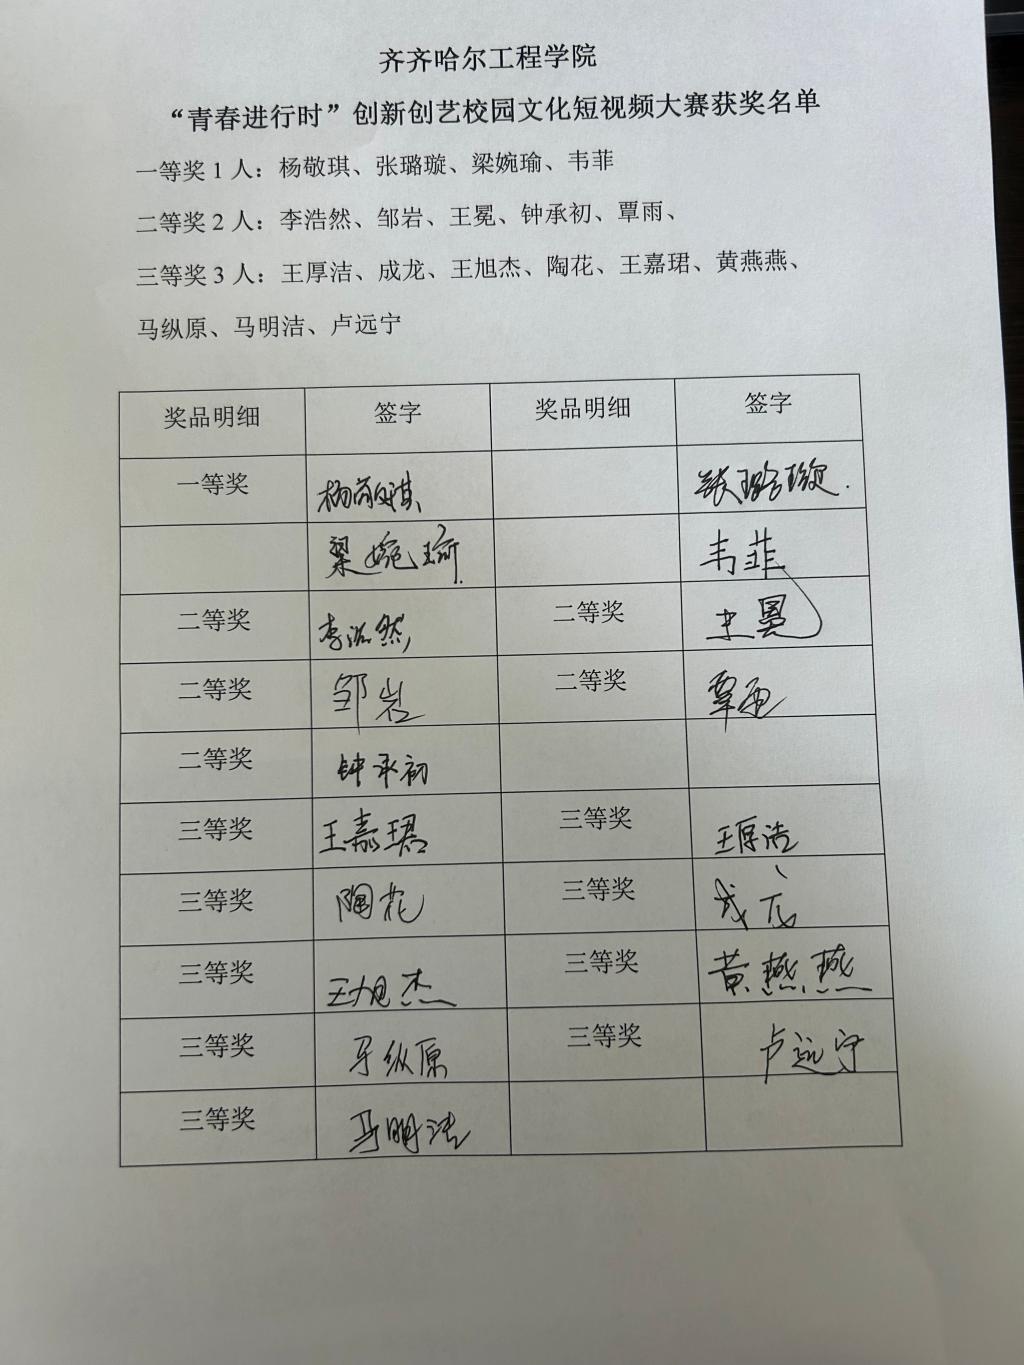 齐齐哈尔工程学院
“青春进行时”创新创艺校园文化短视频大赛获奖名单
一等奖 1 人：杨敬琪、张璐璇、梁婉瑜、韦菲
二等奖 2 人：李浩然、邹岩、王冕、钟承初、覃雨、
三等奖 3 人：王厚洁、成龙、王旭杰、陶花、王嘉珺、黄燕燕、
马纵原、马明洁、卢远宁
奖品明细 签字 奖品明细 签字
一等奖 杨敬琪 张璐璇.
梁婉瑜. 韦菲
二等奖 李浩然 二等奖 王冕
二等奖 邹岩 二等奖 覃雨
二等奖 钟承初
三等奖 王嘉珺 三等奖 王厚洁
三等奖 陶花 三等奖 成龙
三等奖 王旭杰 三等奖 黄燕燕
三等奖 马纵原 三等奖 卢远宁
三等奖 马明洁